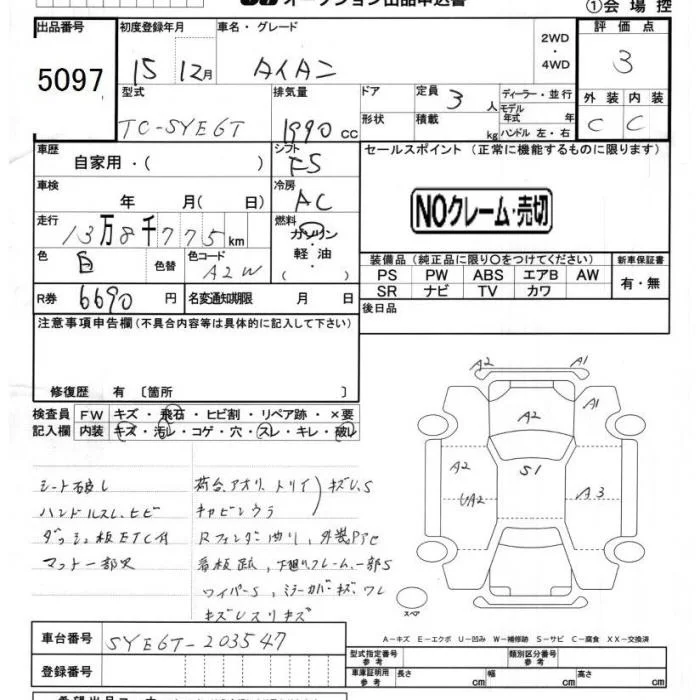 オークション出品申込書
①会場控
出品番号 5097
初度登録年月 15 12月
車名・グレード タイタン
2WD・4WD
評価点 3
外装 C 内装 C
型式 TC-SYE6T
排気量 1990 cc
ドア
形状
定員 3 人
積載 kg
ディーラー・並行
モデル年式 年
ハンドル 左・右
車歴 自家用・( )
シフト F5
セールスポイント (正常に機能するものに限ります)
車検 年 月(日)
冷房 AC
NOクレーム・売切
走行 13万8千775km
燃料 ガソリン・軽油・( )
色 白 色替
色コード A2W
装備品 (純正品に限り○をつけてください)
新車保証書
PS PW ABS エアB AW
SR ナビ TV カワ
有・無
R券 6690 円
名変通知期限 月 日
後日品
注意事項申告欄 (不具合内容等は具体的に記入して下さい)
修復歴 有 〔箇所 〕
検査員記入欄
FW キズ・飛石・ヒビ割・リペア跡・×要
内装 キズ・汚レ・コゲ・穴・スレ・キレ・破レ
A2 A1
A2 A1
A2 S1
UA2 A3
スペア
シート破レ
ハンドルスレ、ヒビ
ダッシュ板ETC付
マット一部欠
荷台、アオリ、トリイ キズU、S
キャビンウラ
Rフェンダ曲リ、外装P
看板跡、下廻リフレーム一部S
ワイパーS、ミラーカバーキズ、ワレ
キズUスリキズ
A-キズ E-エクボ U-凹み W-補修跡 S-サビ C-腐食 XX-交換済
車台番号 SYE6T-203547
登録番号
型式指定番号 参考
類別区分番号 参考
車庫証明用 参考
長さ cm 幅 cm 高さ cm